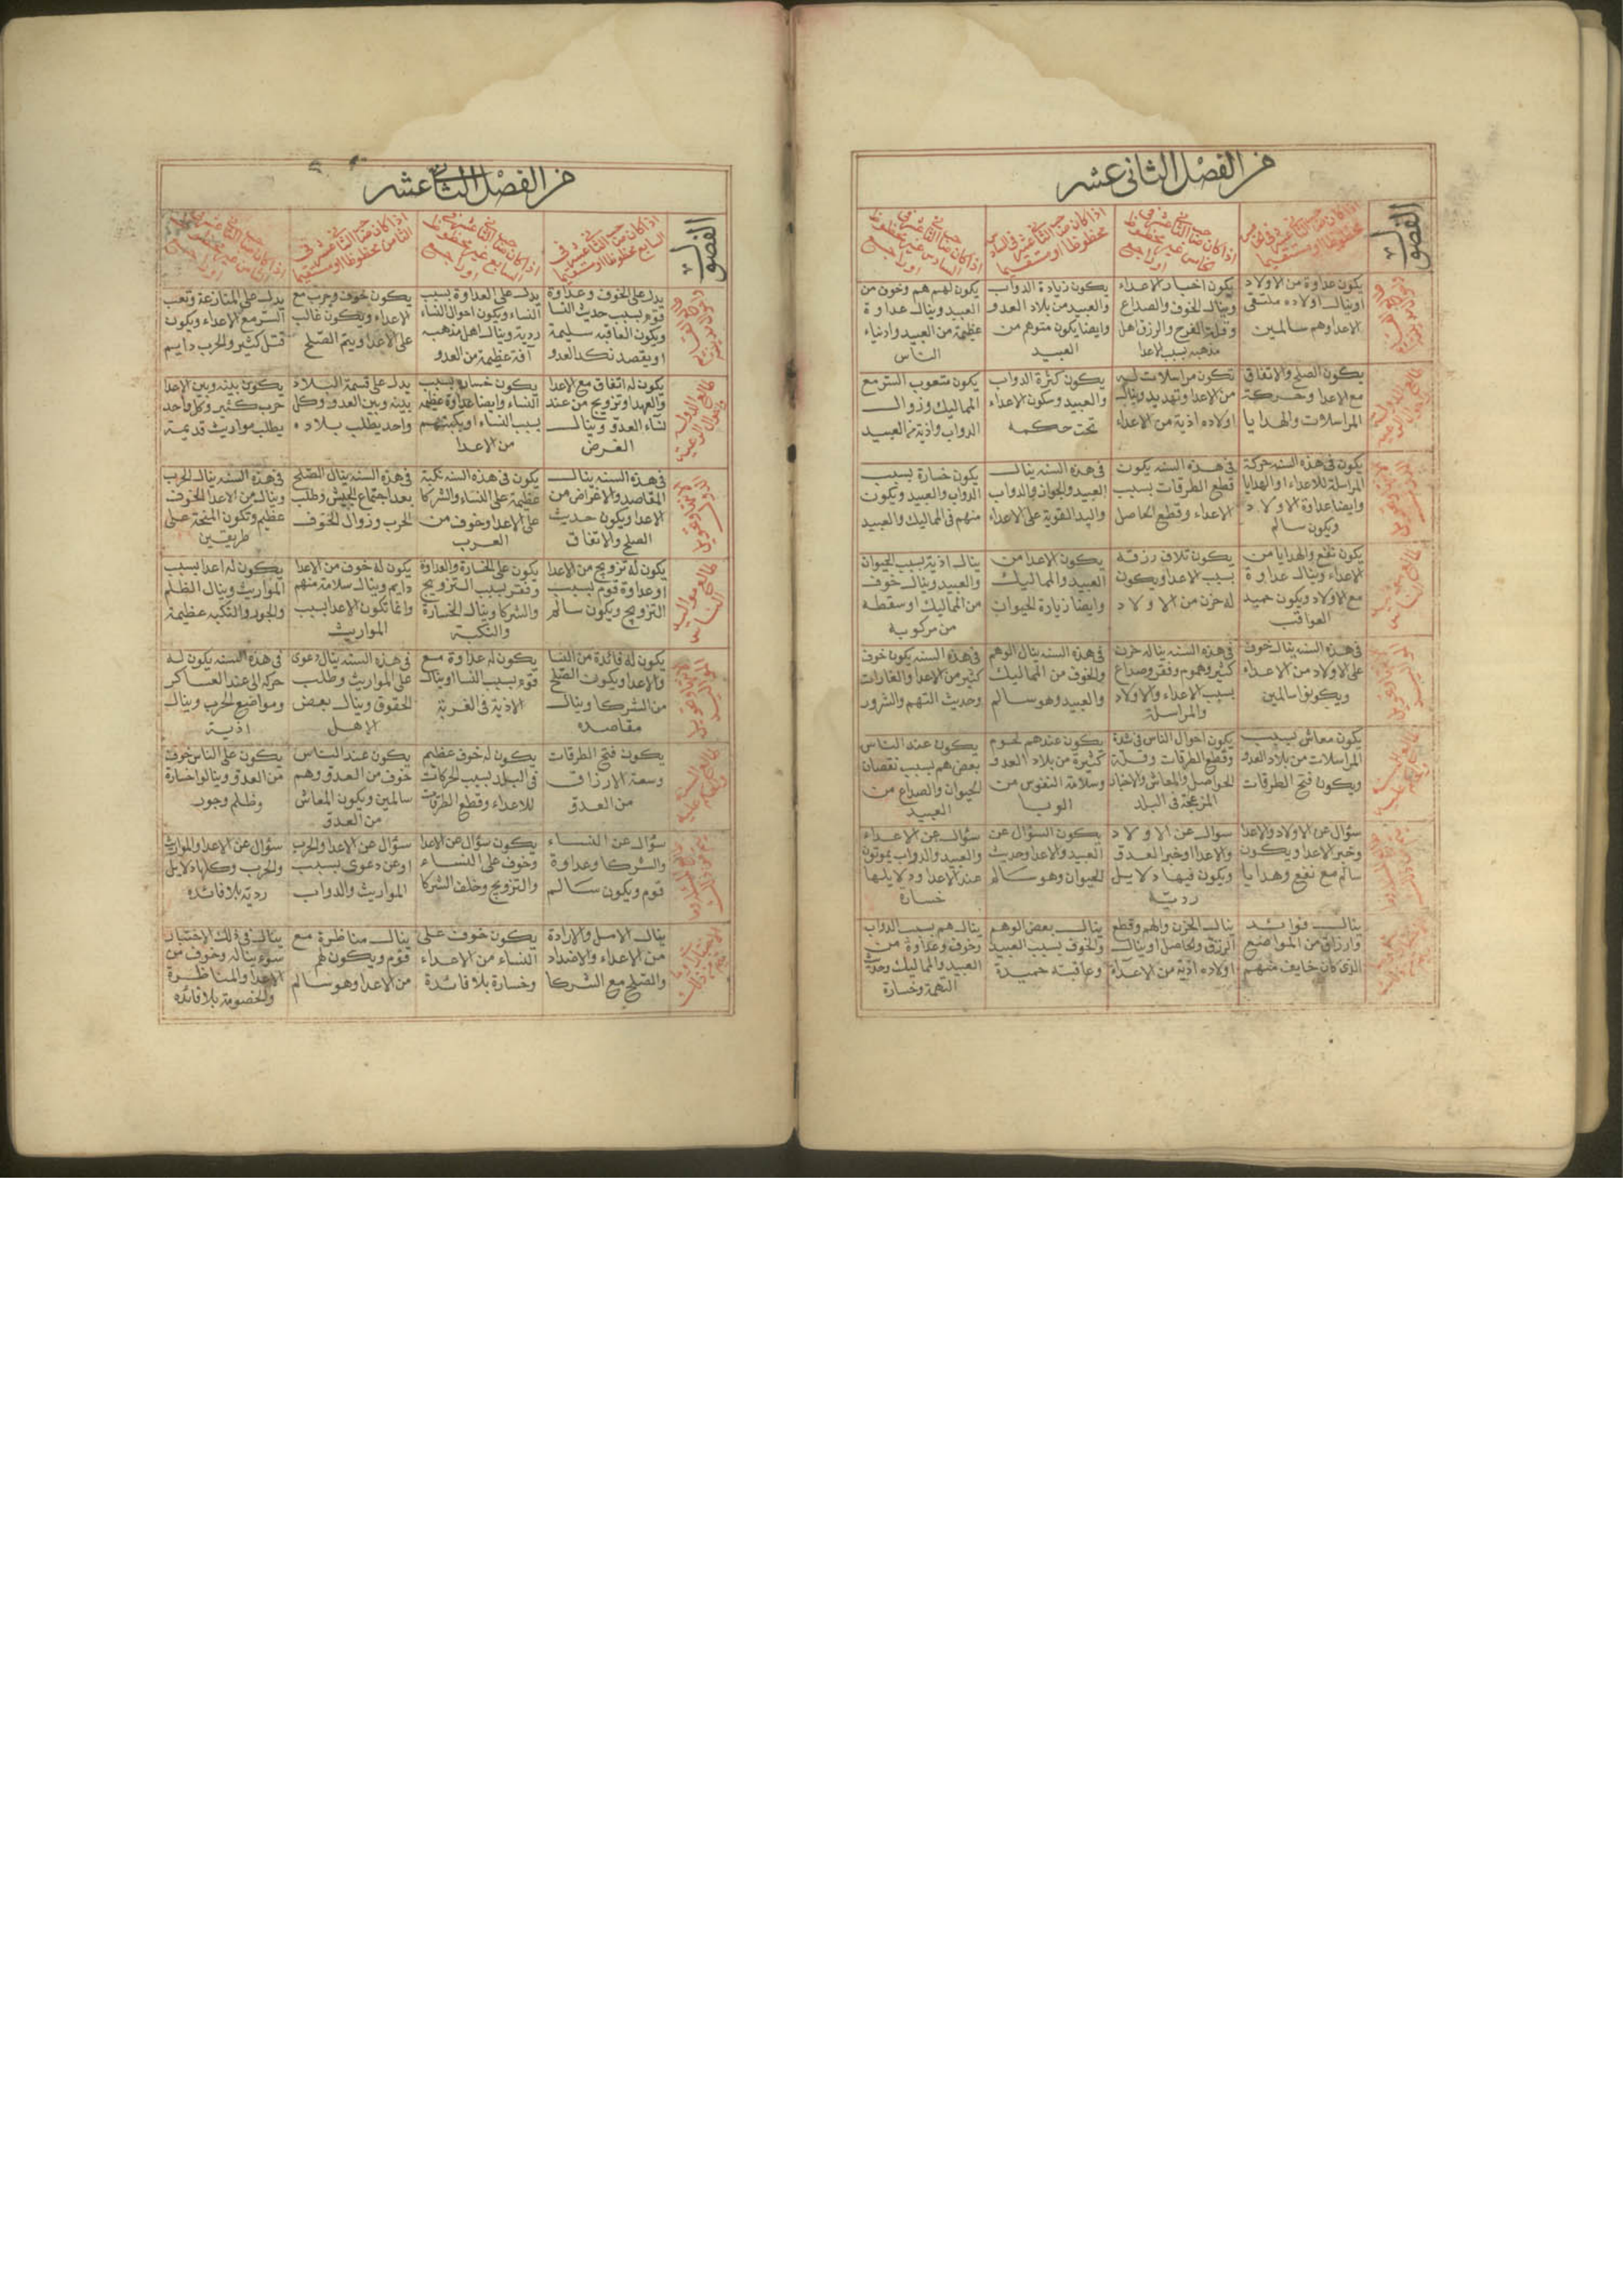 من الفصل الثاني عشر
الفصول
اذا كان صاحب الثاني عشر في الخامس
محفوظا او مستقيما
اذا كان صاحب الثاني عشر في
الخامس غير محفوظ
او راجع
اذا كان صاحب الثاني عشر في السادس
محفوظا او مستقيما
اذا كان صاحب الثاني عشر في
السادس غير محفوظ
او راجع
يكون عداوة من الاولاد
او ينال اولاده ملتقى
الاعدا وهم سالمين
يكون اخبار الاعداء
وينال الخوف والصداع
وقلة الفرح والرزق اهل
مذهبه بسبب الاعدا
يكون زيادة الدواب
والعبيد من بلاد العدو
وايضا يكون متوهم من
العبيد
يكون لهم هم وخوف من
العبيد وينال عداوة
عظيمة من العبيد وادنياء
الناس
يكون الصلح والاتفاق
مع الاعدا وحركة
المراسلات والهدايا
تكون مراسلات اليه
من الاعدا وتهديد وينال
اولاده اذية من الاعداء
يكون كثرة الدواب
والعبيد وسكون الاعداء
تحت حكمه
يكون متعوب السر مع
المماليك وزوال
الدواب واذية من العبيد
يكون في هذه السنه حركة
المراسلة للاعداء او الهدايا
وايضا عداوة الاولاد
ويكون سالم
في هذه السنه يكون
قطع الطرقات بسبب
الاعداء وقطع الحاصل
في هذه السنه ينال
العبيد والجواز والدواب
واليد القوية على الاعداء
يكون خسارة بسبب
الدواب والعبيد ويكون
منهم في المماليك والعبيد
يكون نفع والهدايا من
الاعداء وينال عداوة
مع الاولاد ويكون حميد
العواقب
يكون تلاف رزقه
بسبب الاعدا ويكون
له حزن من الاولاد
يكون الاعدا من
العبيد والمماليك
وايضا زيارة الحيوان
ينال اذية بسبب الحيوان
والعبيد وينال خوف
من المماليك او سقطه
من مركوبه
في هذه السنه ينال خوف
على الاولاد من الاعداء
ويكونوا سالمين
في هذه السنه يناله حزن
كثير وهموم وفقر وصداع
بسبب الاعداء والاولاد
والمراسلة
في هذه السنه ينال الوهم
والخوف من المماليك
والعبيد وهو سالم
في هذه السنه يكون خوف
كثير من الاعدا والغارات
وحديث التهم والشرور
يكون معاش بسبب
المراسلات من بلاد العدو
ويكون فتح الطرقات
يكون احوال الناس في شدة
وقطع الطرقات وقلة
الحواصل والمعاش والاخبار
المزعجة في البلد
يكون عندهم لحوم
كثيرة من بلاد العدو
وسلامة النفوس من
الوبا
يكون عند الناس
بعض هم بسبب نقصان
الحيوان والصداع من
العبيد
سؤال عن الاولاد والاعدا
وخبر الاعدا ويكون
سالم مع نفع وهدايا
سوال عن الاولاد
والاعدا او خبر العدو
ويكون فيها دلايل
ردية
يكون السؤال عن
العبيد والاعدا وحديث
الحيوان وهو سالم
سؤال عن الاعداء
والعبيد والدواب يموتون
عند الاعدا ودلايلها
خسارة
ينال فوائد
وارزاق من المواضع
الذي كان خايف منهم
ينال الحزن والهم وقطع
الرزق والحاصل او ينال
اولاده اذية من الاعداء
ينال بعض الوهم
والخوف بسبب العبيد
وعاقبته حميدة
يناله هم بسبب الدواب
وخوف وعداوة من
العبيد والمماليك وحديث
التهمة وخسارة
من الفصل الثاني عشر
الفصول
اذا كان صاحب الثاني عشر في
السابع محفوظا او مستقيما
اذا كان صاحب الثاني عشر في
السابع غير محفوظ
او راجع
اذا كان صاحب الثاني عشر في
الثامن محفوظا او مستقيما
اذا كان صاحب الثاني عشر في
الثامن غير محفوظ
او راجع
يدل على الخوف وعداوة
قوم بسبب حديث النسا
ويكون العاقبه سليمة
او يقصد نكد العدو
يدل على العداوة بسبب
النساء ويكون احوال النساء
ردية وينال اهل مذهبه
آفة عظيمة من العدو
يكون خوف وحرب مع
الاعداء ويكون غالب
على الاعدا ويتم الصلح
يدل على المنازعة وتعب
السر مع الاعداء ويكون
قتل كثير والحرب دايم
يكون له اتفاق مع الاعدا
والعهد او تزويج من عند
نساء العدو وينال
الغرض
يكون خسارة بسبب
النساء وايضا عداوة عظيمه
بسبب النساء او يكبتهم
من الاعدا
يدل على قسمة البلاد
بينه وبين العدو وكل
واحد يطلب بلاده
يكون بينه وبين الاعدا
حرب كثير وكل واحد
يطلب مواريث قديمة
في هذه السنه ينال
المقاصد والاغراض من
الاعدا ويكون حديث
الصلح والاتفاق
يكون في هذه السنه نكبة
عظيمة على النساء والشركا
على الاعدا وخوف من
العرب
في هذه السنه ينال الصلح
بعد اجتماع الجيش وطلب
الحرب وزوال الخوف
في هذه السنه ينال الحرب
وينال من الاعدا الخوف
عظيم وتكون المنحة على
طريقين
يكون له تزويج من الاعدا
او عداوة قوم بسبب
التزويج ويكون سالم
يكون على الخسارة والعداوة
وفقر بسبب التزويج
والشركا وينال الخسارة
والنكبة
يكون له خوف من الاعدا
دايم وينال سلامة منهم
وانما تكون الاعدا بسبب
المواريث
يكون له اعدا بسبب
المواريث وينال الظلم
والجور والنكبه عظيمة
يكون له فائدة من النسا
والاعدا ويكون الصلح
من الشركا وينال
مقاصده
يكون له عداوة مع
قوم بسبب النسا او ينال
الاذية في الغربة
في هذه السنه ينال دعوى
على المواريث وطلب
الحقوق وينال بعض
الاهل
في هذه السنه يكون له
حركه الى عند العساكر
ومواضع الحرب وينال
اذية
يكون فتح الطرقات
وسعة الارزاق
من العدو
يكون له خوف عظيم
في البلد بسبب الحركات
للاعداء وقطع الطرقات
يكون عند الناس
خوف من العدو وهم
سالمين ويكون المعاش
من العدو
يكون على الناس خوف
من العدو وينالوا خسارة
وظلم وجور
سؤال عن النساء
والشركا وعداوة
قوم ويكون سالم
يكون سؤال عن الاعدا
وخوف على النساء
والتزويج وخلف الشركا
سؤال عن الاعدا والحرب
او عن دعوى بسبب
المواريث والدواب
سؤال عن الاعدا والمواريث
والحرب وكلها دلايل
ردية بلا فائده
ينال الامل والارادة
من الاعداء والاضداد
والصلح مع الشركا
يكون خوف على
النساء من الاعداء
وخسارة بلا فائدة
ينال مناظرة مع
قوم ويكون لهم
من الاعدا وهو سالم
ينال في ذلك الاختيار
سوء يناله وخوف من
الاعدا والمناظرة
والخصومة بلا فائده